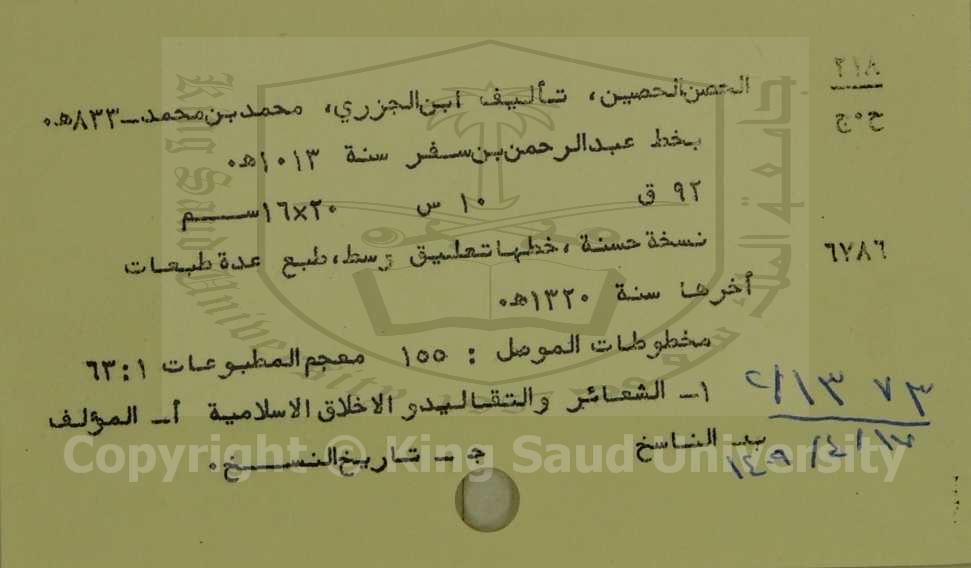 ٢١٨
ح٠ج
الحصن الحصين، تأليف ابن الجزري، محمد بن محمد ـ ٨٣٣هـ٠
بخط عبد الرحمن بن سفر سنة ١٠١٣هـ٠
٩٢ ق ١٠ س ٢٠×١٦ســـم
٦٧٨٦
نسخة حسنة، خطها تعليق وسط، طبع عدة طبعات
أخرها سنة ١٣٢٠هـ٠
مخطوطات الموصل : ١٥٥ معجم المطبوعات ٦٣:١
١ـ الشعائر والتقاليد و الاخلاق الاسلامية أـ المؤلف
بـ الناسخ جـ ـ تاريخ النسـخ٠
King Saud University
جامعة الملك سعود
Copyright © King Saud University